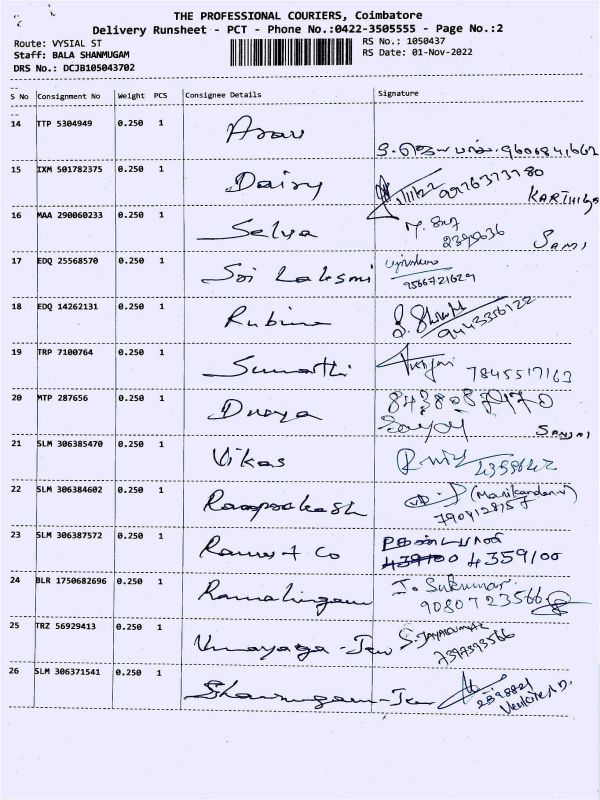 THE PROFESSIONAL COURIERS, Coimbatore
Delivery Runsheet - PCT - Phone No.:0422-3505555 - Page No.:2
Route: VYSIAL ST RS No.: 1050437
Staff: BALA SHANMUGAM RS Date: 01-Nov-2022
DRS No.: DCJB105043702
S No Consignment No Weight PCS Consignee Details Signature
14 TTP 5304949 0.250 1
15 IXM 501782375 0.250 1 Daisy 1/11/22 KARTHIGA
16 MAA 290060233 0.250 1 Selva SAMI
17 EDQ 25568570 0.250 1 Sri Laksmi 9566721629
18 EDQ 14262131 0.250 1 Rubine 9443356122
19 TRP 7100764 0.250 1 Sumathi 7845517163
20 MTP 287656 0.250 1 SANJAI
21 SLM 306385470 0.250 1 Vikas
22 SLM 306384602 0.250 1 Ramprakash (Manikandan)
23 SLM 306387572 0.250 1 & Co 4359100
24 BLR 1750682696 0.250 1 Ramalingam J. Sukumar
9080723566
25 TRZ 56929413 0.250 1 S. JAYAKUMAR
7397393566
26 SLM 306371541 0.250 1